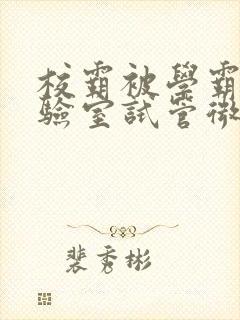 校霸被學霸
驗室試管微
裴秀彬